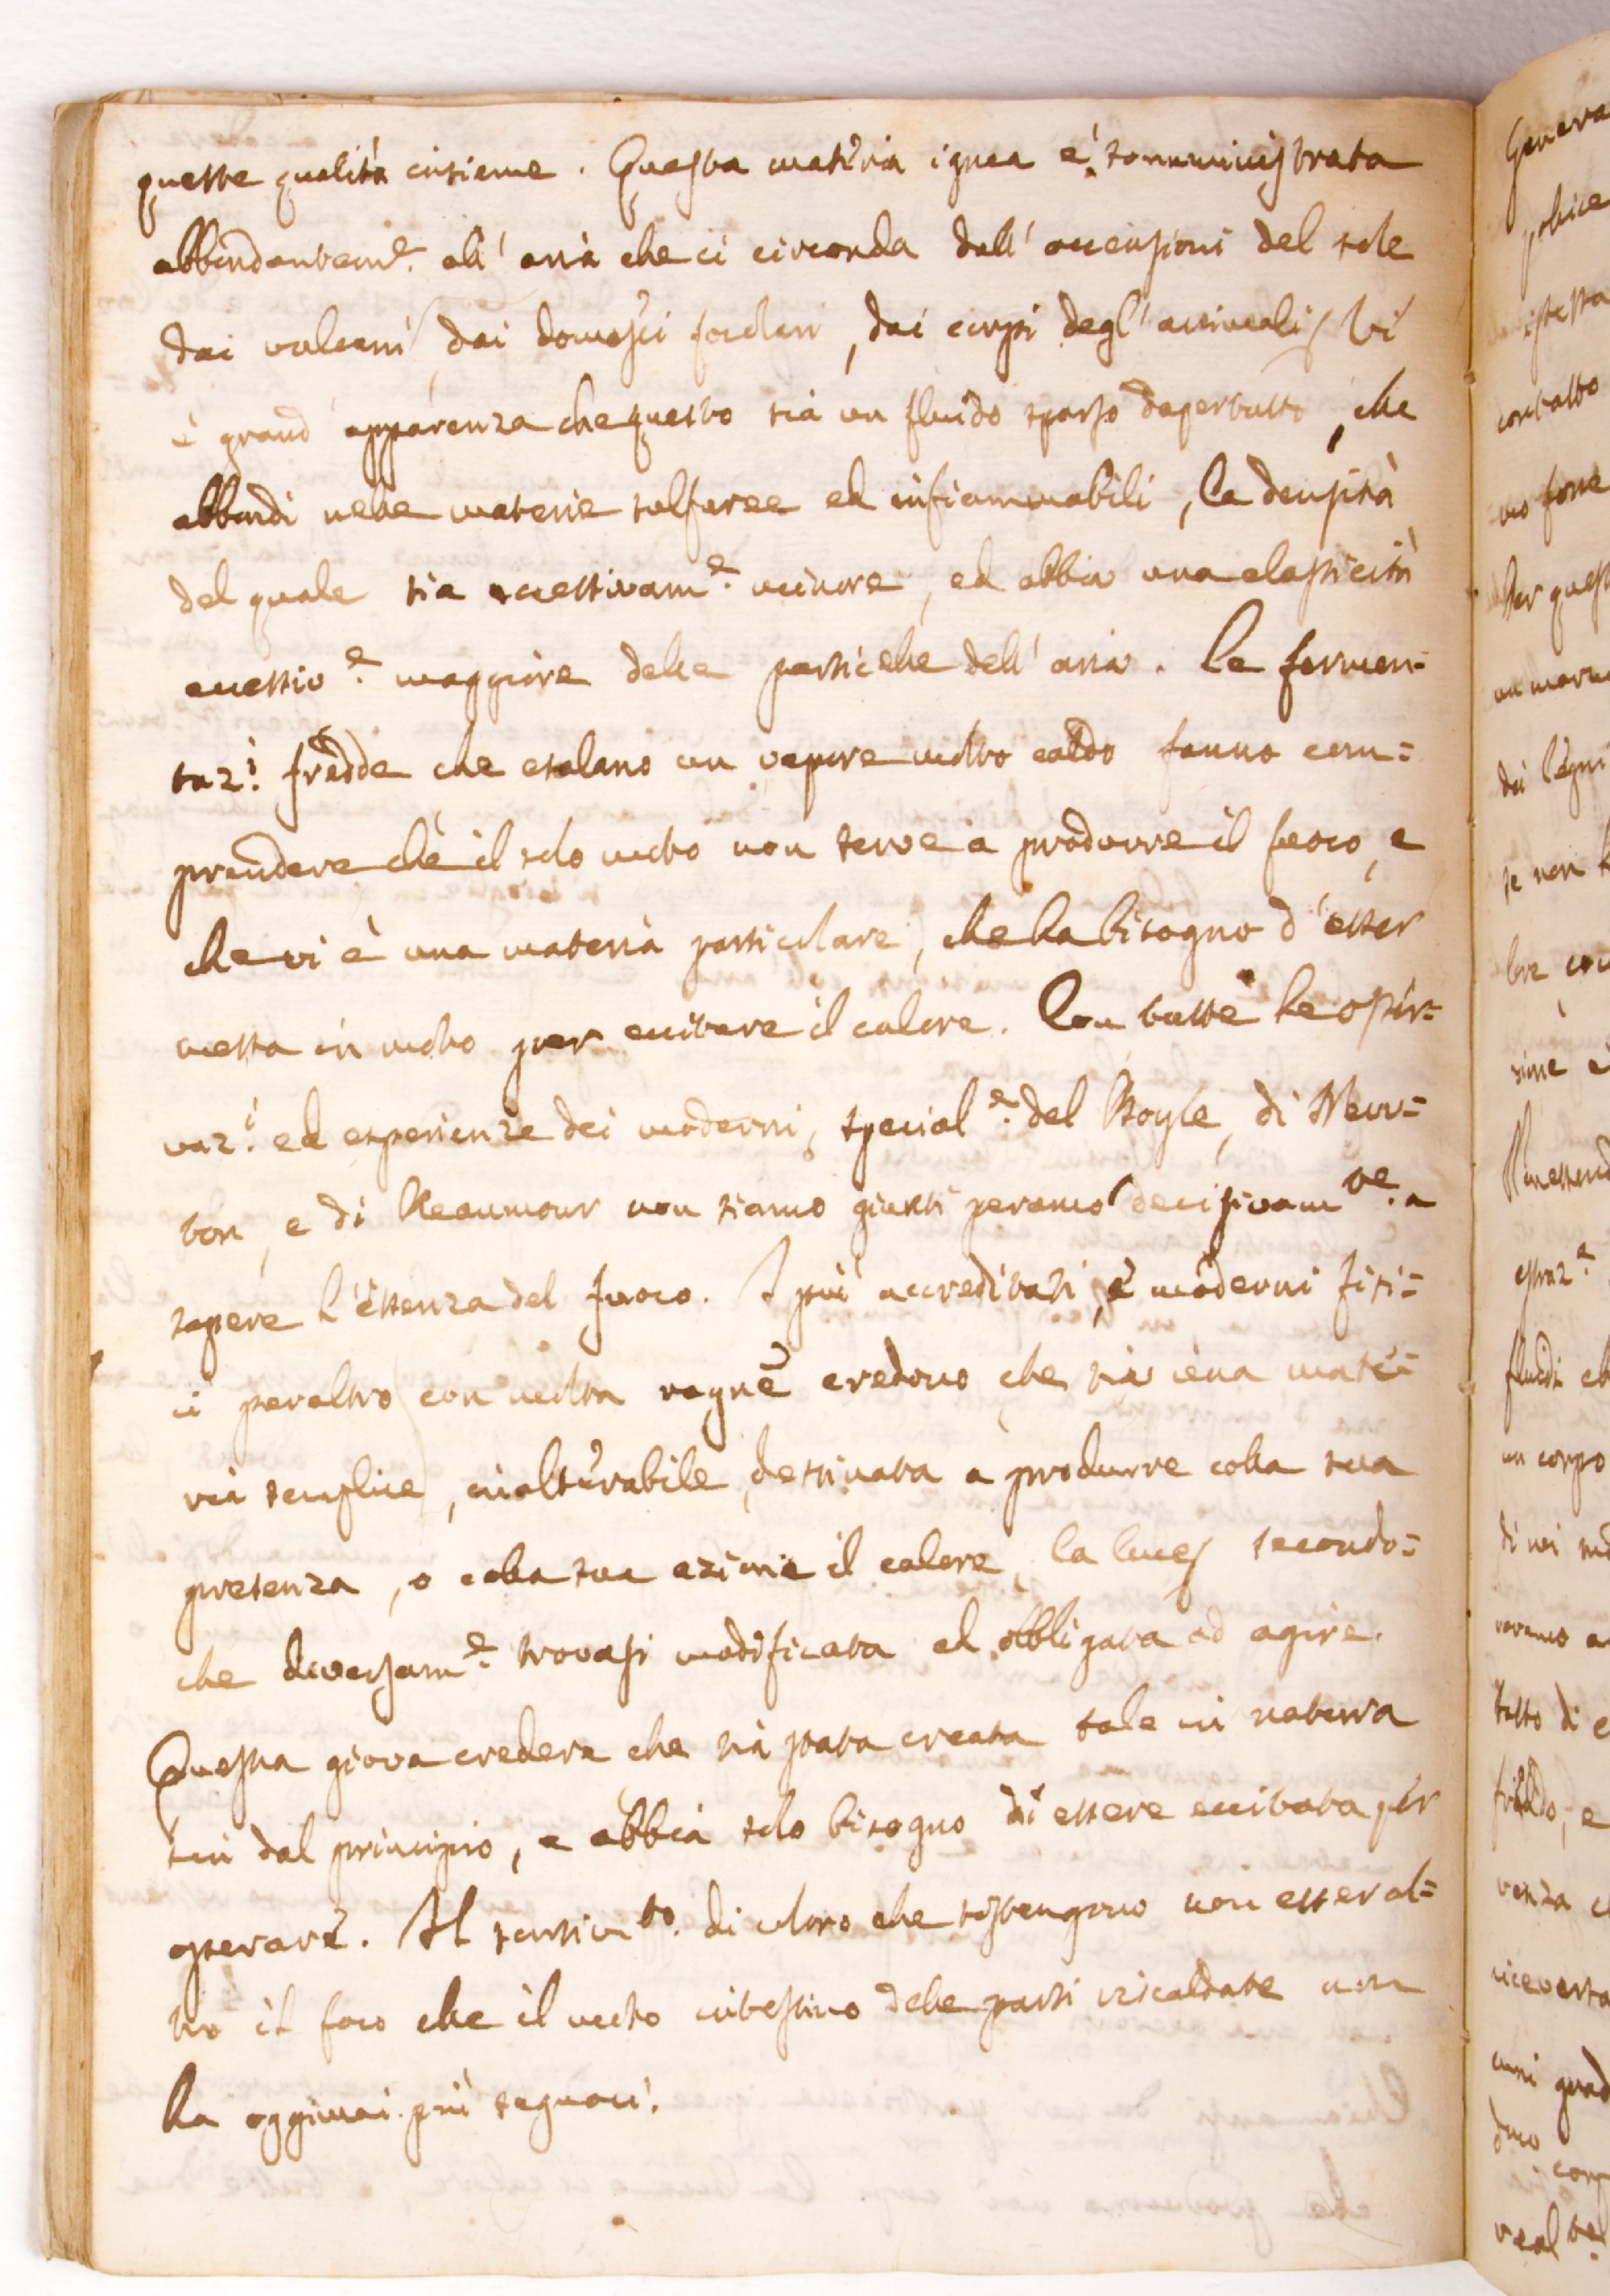 queste qualità insieme. Questa materia ignea è somministrata
abbondantem.e all' aria che ci circonda dall' accensioni del sole
dai vulcani, dai domestici focolari, dai corpi degl' animali. Vi
è grand' apparenza che questo sia un fluido sparso dapertutto, che
abbondi nelle materie sulfuree ed infiammabili, la densità
del quale sia eccessivam.e minore, ed abbia una elasticità
eccessiv.e maggiore delle particelle dell' aria. Le fermen=
taz.i fredde che esalano un vapore molto caldo fanno com=
prendere che il solo moto non serve a produrre il fuoco, e
che vi è una materia particulare, che ha bisogno d' esser
messa in moto per eccitare il calore. Con tutte le osser=
vaz.i ed esperienze dei moderni, special.e del Boyle, di New=
ton, e di Reaumour non siamo giunti peranco decisivam.te a
sapere l' essenza del fuoco. I più accreditati, e moderni fisi=
ci peraltro con molta ragne credono che sia una mate=
ria semplice, inalterabile, destinata a produrre colla sua
presenza, o colla sua azione il calore, la luce, secondo=
che diversam.e trovasi modificata ed obbligata ad agire.
Questa giova credere che sia stata creata tale in natura
sin dal principio, e abbia solo bisogno di essere eccitata per
operare. Il sentim.to di coloro che sostengono non esser al=
tro il foco che il moto intestino delle parti riscaldate non
ha oggimai più seguaci.
Genera
istessa
contatto
no forse
Per quest
dei legni
se non
un corpo
tutto di
viceversa